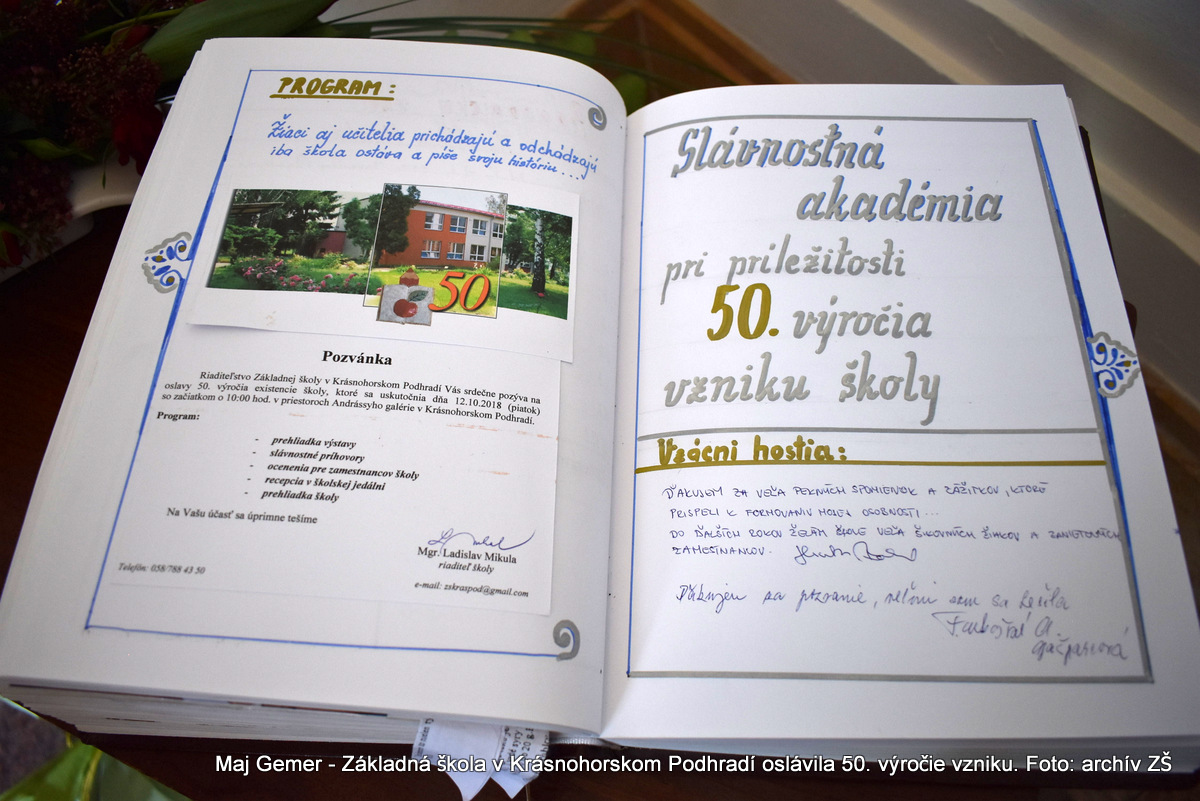 PROGRAM:
Žiaci aj učitelia prichádzajú a odchádzajú
iba škola ostáva a píše svoju históriu...
50
Pozvánka
Riaditeľstvo Základnej školy v Krásnohorskom Podhradí Vás srdečne pozýva na
oslavy 50. výročia existencie školy, ktoré sa uskutočnia dňa 12.10.2018 (piatok)
so začiatkom o 10:00 hod. v priestoroch Andrássyho galérie v Krásnohorskom Podhradí.
Program:
- prehliadka výstavy
- slávnostné príhovory
- ocenenia pre zamestnancov školy
- recepcia v školskej jedálni
- prehliadka školy
Na Vašu účasť sa úprimne tešíme
Mgr. Ladislav Mikula
riaditeľ školy
Telefón: 058/788 43 50
e-mail: zskraspod@gmail.com
Slávnostná
akadémia
pri príležitosti
50. výročia
vzniku školy
Vzácni hostia:
ĎAKUJEM ZA VEĽA PEKNÝCH SPOMIENOK A ZÁŽITKOV, KTORÉ
PRISPELI K FORMOVANIU MOJEJ OSOBNOSTI...
DO ĎALŠÍCH ROKOV ŽELÁM ŠKOLE VEĽA ŠIKOVNÝCH ŽIAKOV A ZANIETENÝCH
ZAMESTNANCOV.
Ďakujem za pozvanie, veľmi som sa tešila
Maj Gemer - Základná škola v Krásnohorskom Podhradí oslávila 50. výročie vzniku. Foto: archív ZŠ